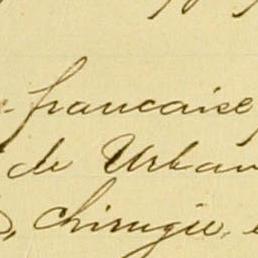 francaise
de Urban
chirugie,